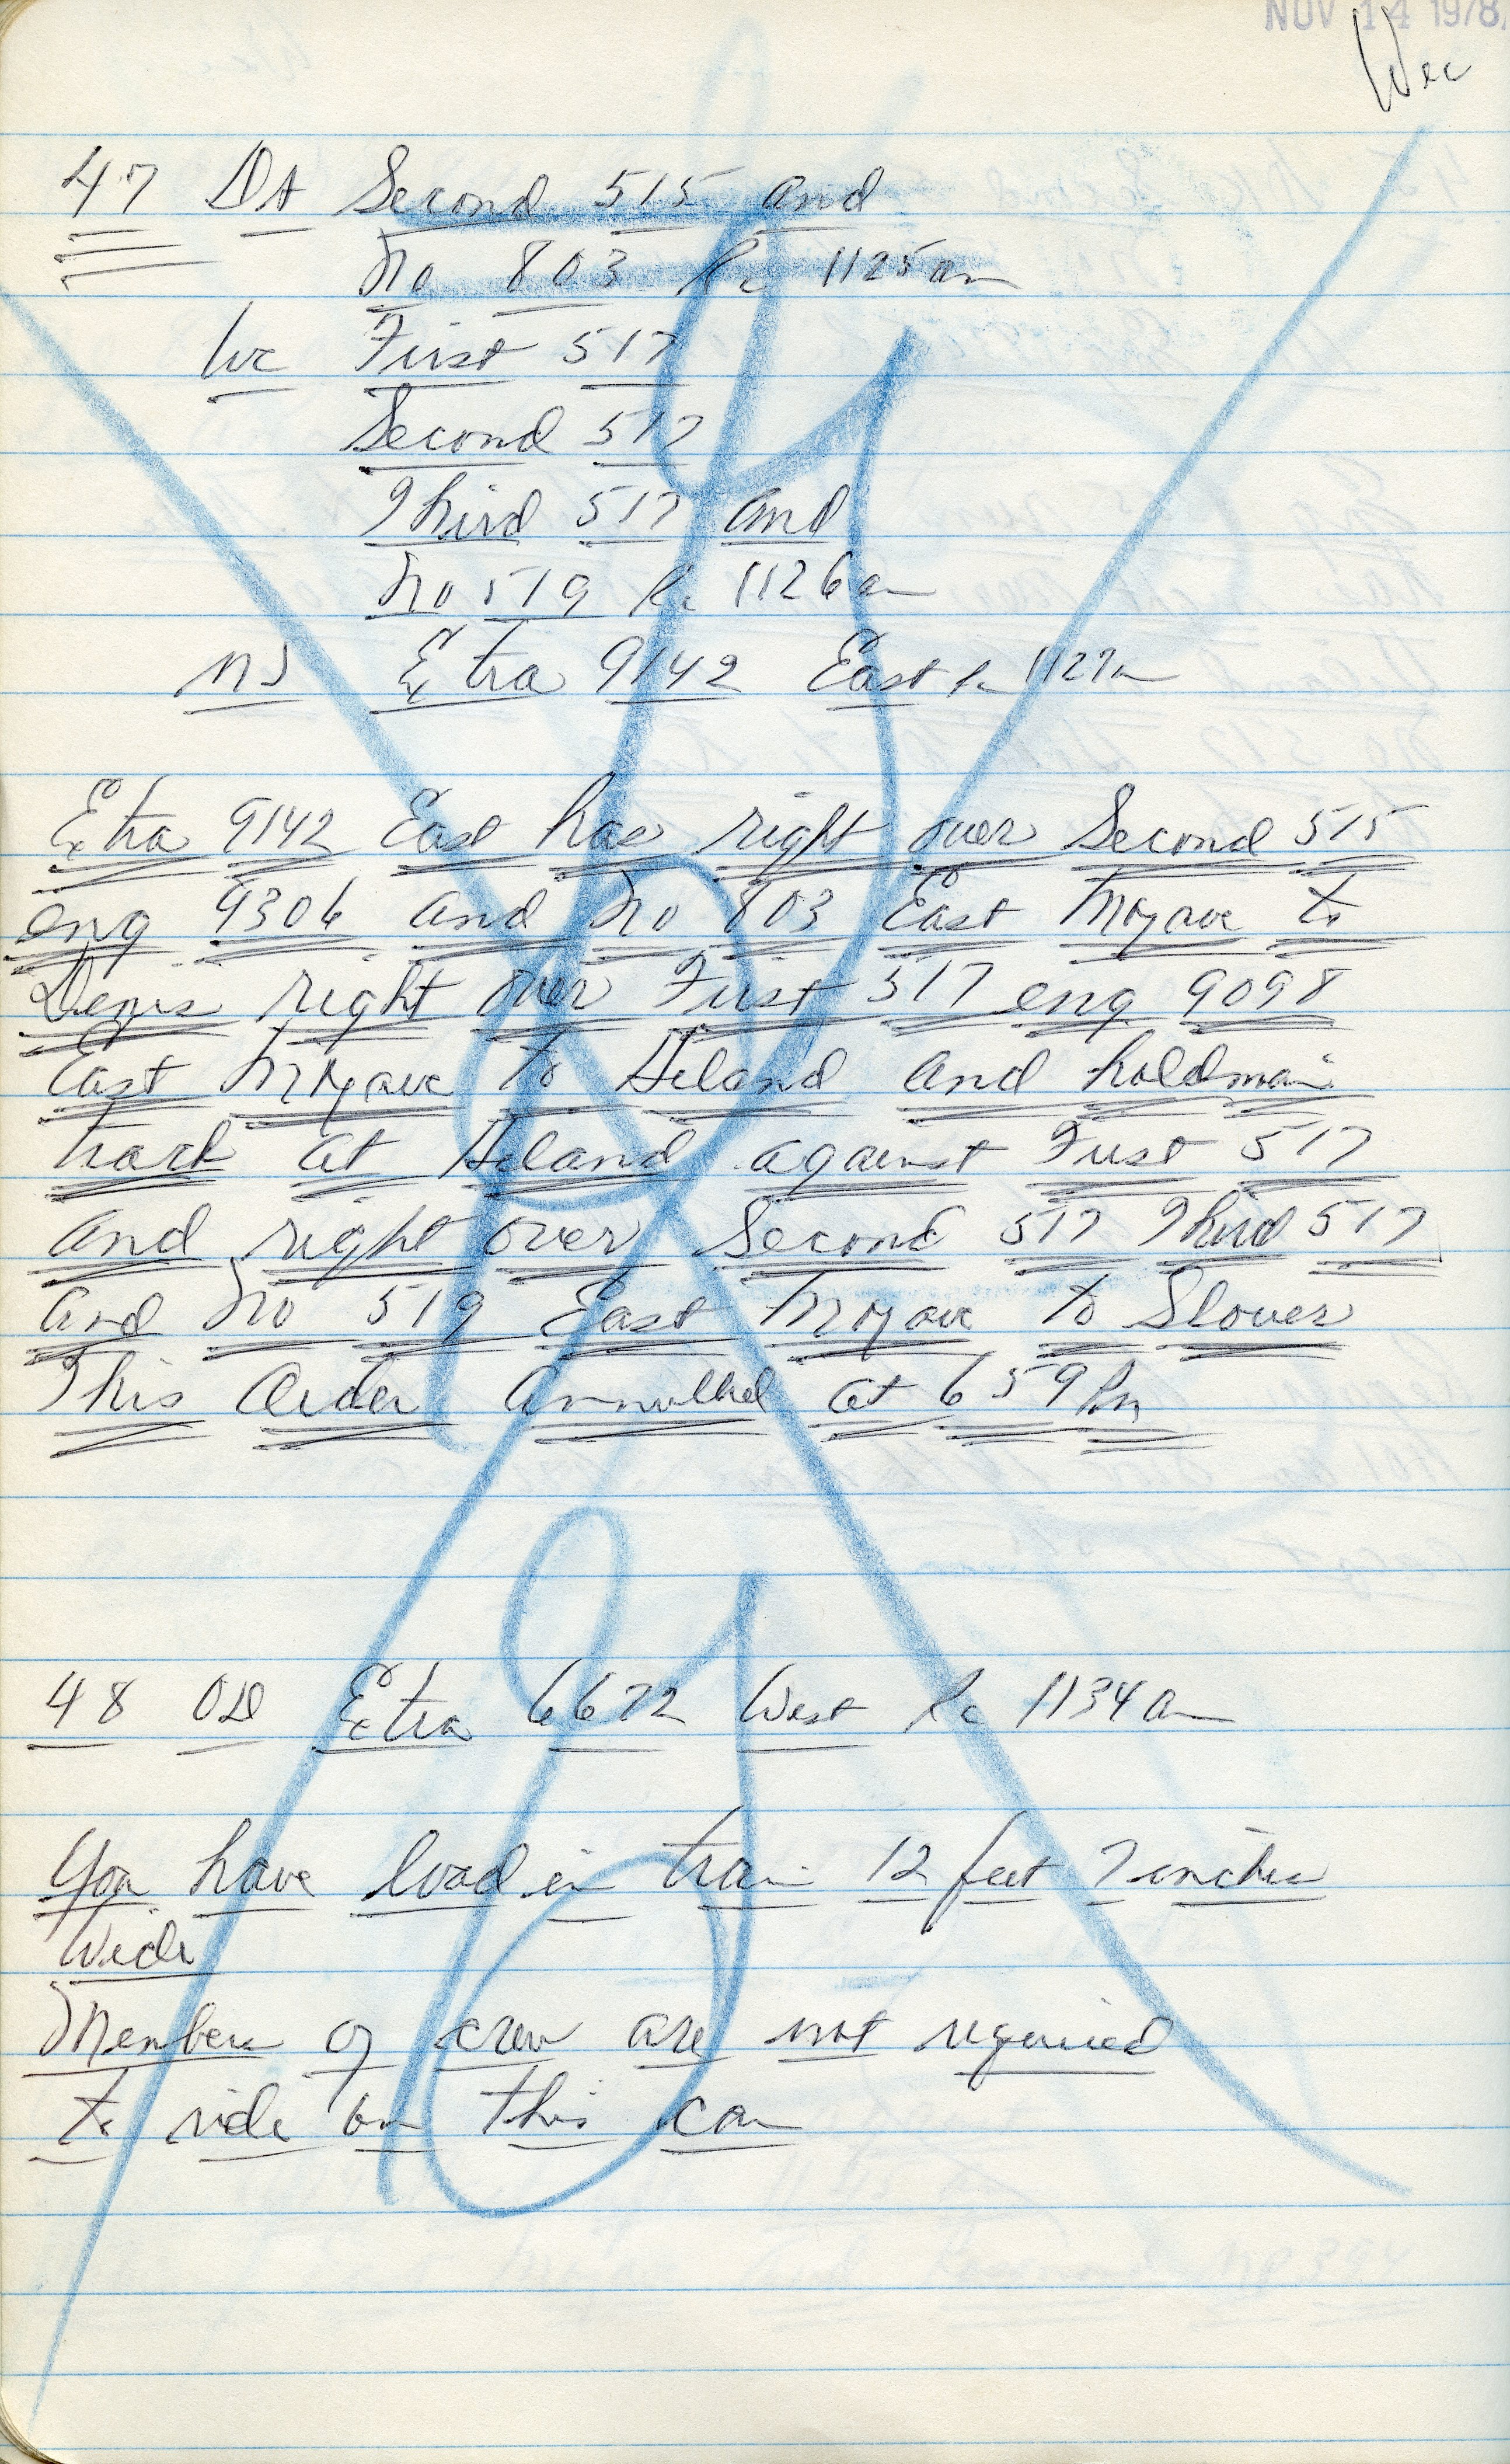 NOV 14 1978
Wec
47 DA Second 515 and
No 803 Rc 1125 am
Wc First 517
Second 517
Third 517 and
No 519 Rc 1126 am
NJ Extra 9142 East Rc 1127 am
Extra 9142 East has right over Second 515
eng 9306 and No 803 East Mojave to
Denis right over First 517 eng 9098
East Mojave to Hiland and hold main
track at Hiland against First 517
and right over Second 517 Third 517
and No 519 East Mojave to Slover
This Order annulled at 659 Pm
48 OD Extra 6672 West Rc 1134 am
You have load in train 12 feet 7 inches
Wide
Members of crew are not required
to ride on this car